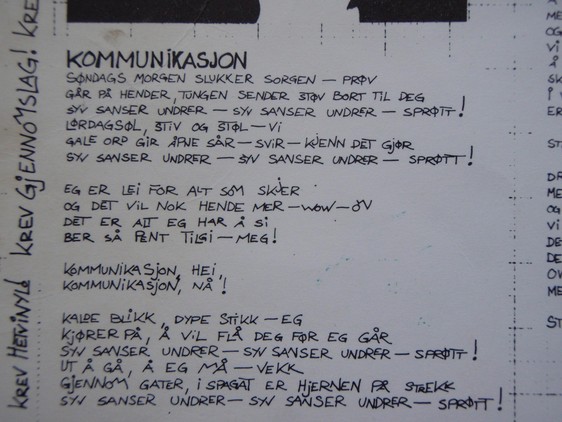 KOMMUNIKASJON
SØNDAGS MORGEN SLUKKER SORGEN — PRØV
GÅR PÅ HENDER, TUNGEN SENDER STØV BORT TIL DEG
SYV SANSER UNDRER — SYV SANSER UNDRER — SPRØTT!
LØRDAGSØL, STIV OG STØL — VI
GALE ORD GIR ÅPNE SÅR — SVIR — KJENN DET GJØR
SYV SANSER UNDRER — SYV SANSER UNDRER — SPRØTT!
EG ER LEI FOR ALT SOM SKJER
OG DET VIL NOK HENDE MER — WOW — ØV
DET ER ALT EG HAR Å SI
BER SÅ PENT TILGI — MEG!
KOMMUNIKASJON, HEI,
KOMMUNIKASJON, NÅ!
KALDE BLIKK, DYPE STIKK — EG
KJØRER PÅ, Å VIL FLÅ DEG FØR EG GÅR
SYV SANSER UNDRER — SYV SANSER UNDRER — SPRØTT!
UT Å GÅ, Å EG MÅ — VEKK
GJENNOM GATER, I SPAGAT ER HJERNEN PÅ STREKK
SYV SANSER UNDRER — SYV SANSER UNDRER — SPRØTT!
KREV HELVINYL! KREV GJENNOMSLAG! KRE